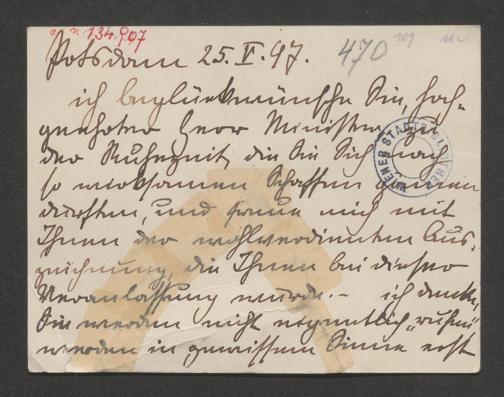 N 134.907
470
Potsdam 25. V. 97.
ich beglückwünsche Sie, hoch-
geehrter Herr Minister, zu
der Ruhezeit, die Sie Sich nach
so wirksamen Schaffen gönnen
durften, und freue mich mit
Ihnen der wohlverdienten Aus-
zeichnung, die Ihnen bei dieser
Veranlassung wurde. – ich denke,
Sie werden nicht eigentlich „ruhen"
werden in gewissem Sinne erst
WIENER STADTBIBLIOTHEK